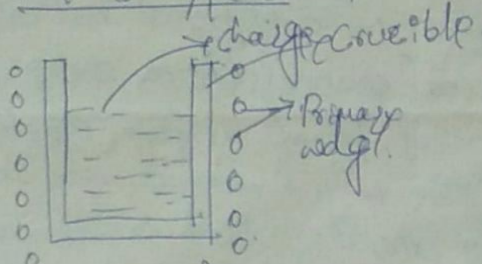 charge Crucible
Primary
wdg.